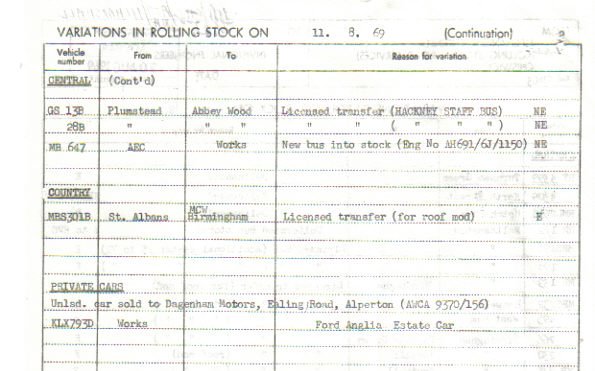 VARIATIONS IN ROLLING STOCK ON 11. 8. 69 (Continuation)
Vehicle number From To Reason for variation
CENTRAL (Cont'd)
GS 13B Plumstead Abbey Wood Licensed transfer (HACKNEY STAFF BUS) NE
28B " " " " " ( " " ") NE
MB 647 AEC Works New bus into stock (Eng No AH691/6J/1150) NE
COUNTRY
MBS301B St. Albans MCW Birmingham Licensed transfer (for roof mod)
PRIVATE CARS
Unlsd. car sold to Dagenham Motors, Ealing Road, Alperton (AWCA 9370/156)
KLX793D Works Ford Anglia Estate Car